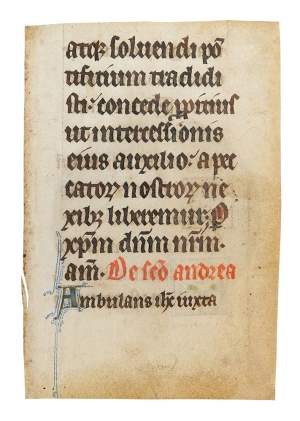 atq; soluendi põ
tificium tradidi
sti: concede ppitius
ut intercessionis
eius auxilio: a pec
catoꝝ nostroꝝ ne
xibꝫ liberemur: P
xp̃m dñm nr̃m.
am̃. De sc̃o andrea
Ambulans ihc̃ iuxta